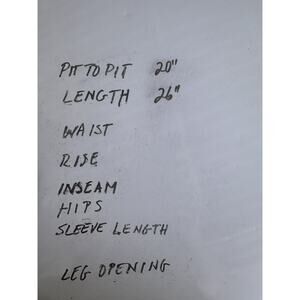 PIT TO PIT 20"
LENGTH 26"
WAIST
RISE
INSEAM
HIPS
SLEEVE LENGTH
LEG OPENING